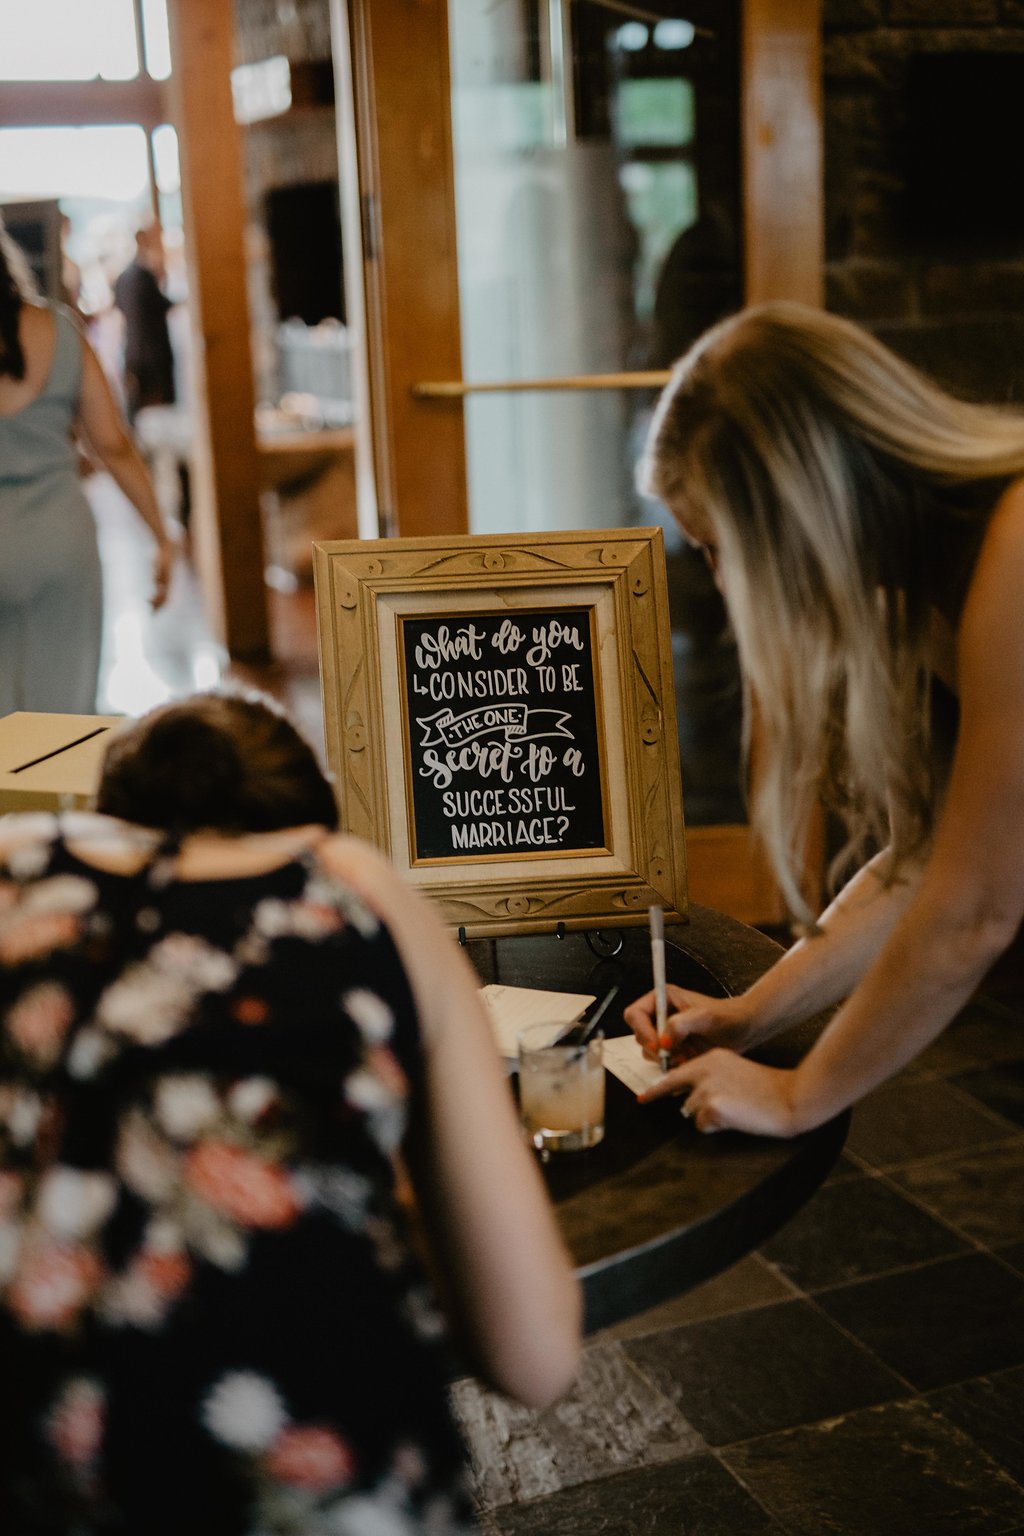 what do you
CONSIDER TO BE
·THE ONE·
secret to a
SUCCESSFUL
MARRIAGE?